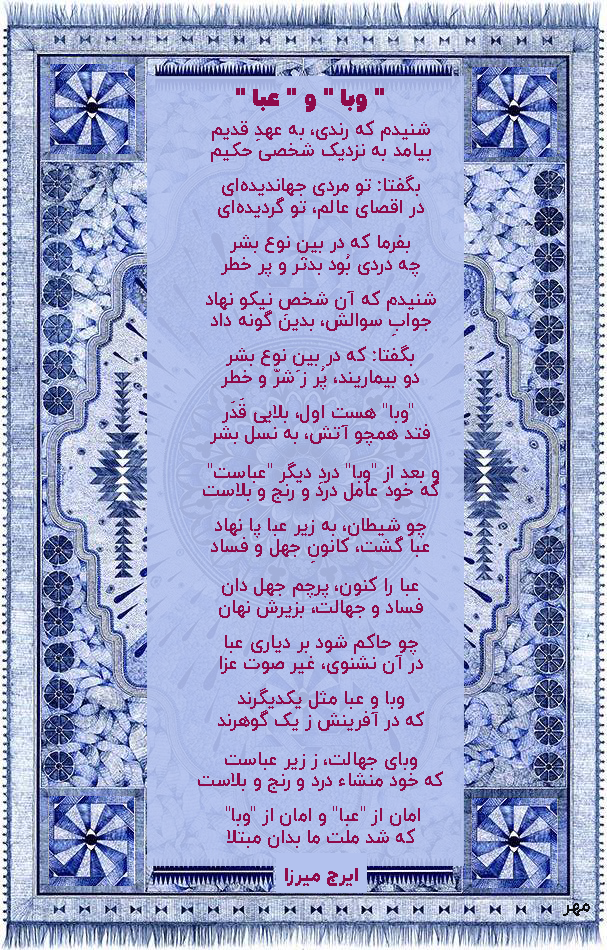 " وبا " و " عبا "
شنیدم که رندی، به عهدِ قدیم
بیامد به نزدیک شخصی حکیم
بگفتا: تو مردی جهاندیده‌ای
در اقصای عالم، تو گردیده‌ای
بفرما که در بینِ نوع بشر
چه دردی بُود بدتر و پر خطر
شنیدم که آن شخصِ نیکو نهاد
جوابِ سوالش، بدین گونه داد
بگفتا: که در بین نوع بشر
دو بیماریند، پُر ز َشرّ و خطر
"وبا" هست اول، بلایی قَدَر
فتد همچو آتش، به نسل بشر
و بعد از "وبا" دردِ دیگر "عباست"
که خود عامل درد و رنج و بلاست
چو شیطان، به زیر عبا پا نهاد
عبا گشت، کانونِ جهل و فساد
عبا را کنون، پرچم جهل دان
فساد و جهالت، بزیرش نهان
چو حاکم شود بر دیاری عبا
در آن نشنوی، غیر صوت عزا
وبا و عبا مثل یکدیگرند
که در آفرینش ز یک گوهرند
وبای جهالت، ز زیر عباست
که خود منشاء درد و رنج و بلاست
امان از "عبا" و امان از "وبا"
که شد ملت ما بدان مبتلا
ایرج میرزا
مهر